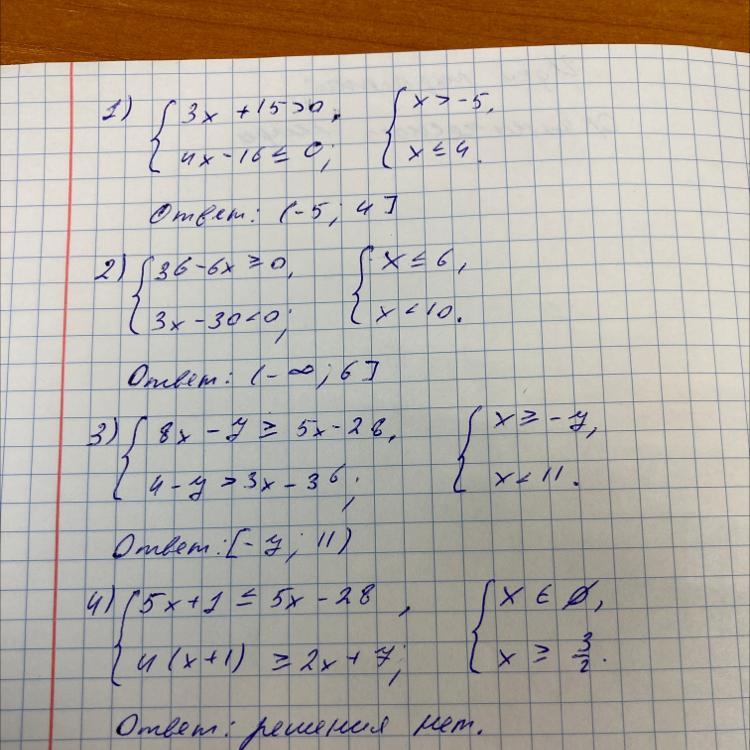 1) { 3x + 15 > 0, { x > -5,
4x - 16 ≤ 0; x ≤ 4.
Ответ: (-5; 4]
2) { 36 - 6x ≥ 0, { x ≤ 6,
3x - 30 < 0; x < 10.
Ответ: (-∞; 6]
3) { 8x - 7 ≥ 5x - 28, { x ≥ -7,
4 - 7 > 3x - 36; x < 11.
Ответ: [-7; 11)
4) { 5x + 1 ≤ 5x - 28, { x ∈ ∅,
4(x+1) ≥ 2x + 7; x ≥ 3/2.
Ответ: решения нет.